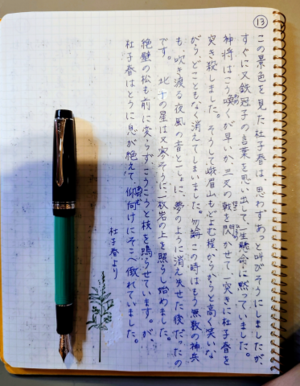 ⑬
この景色を見た杜子春は、思わずあっと叫びそうにしましたが、
すぐに又鉄冠子の言葉を思い出して、一生懸命に黙っていました。
神将はこう喚くが早いか、三叉の戟を閃かせて、一突きに杜子春を
突き殺しました。そうして峨眉山もどよむ程、からからと高く笑いな
がら、どこともなく消えてしまいました。勿論この時はもう無数の神兵
も、吹き渡る夜風の音と一しょに、夢のように消え失せた後だったの
です。北斗の星は又寒そうに、一枚岩の上を照らし始めました。
絶壁の松も前に変らず、こうこうと枝を鳴らせています。が、
杜子春はとうに息が絶えて、仰向けにそこへ倒れていました。
杜子春より